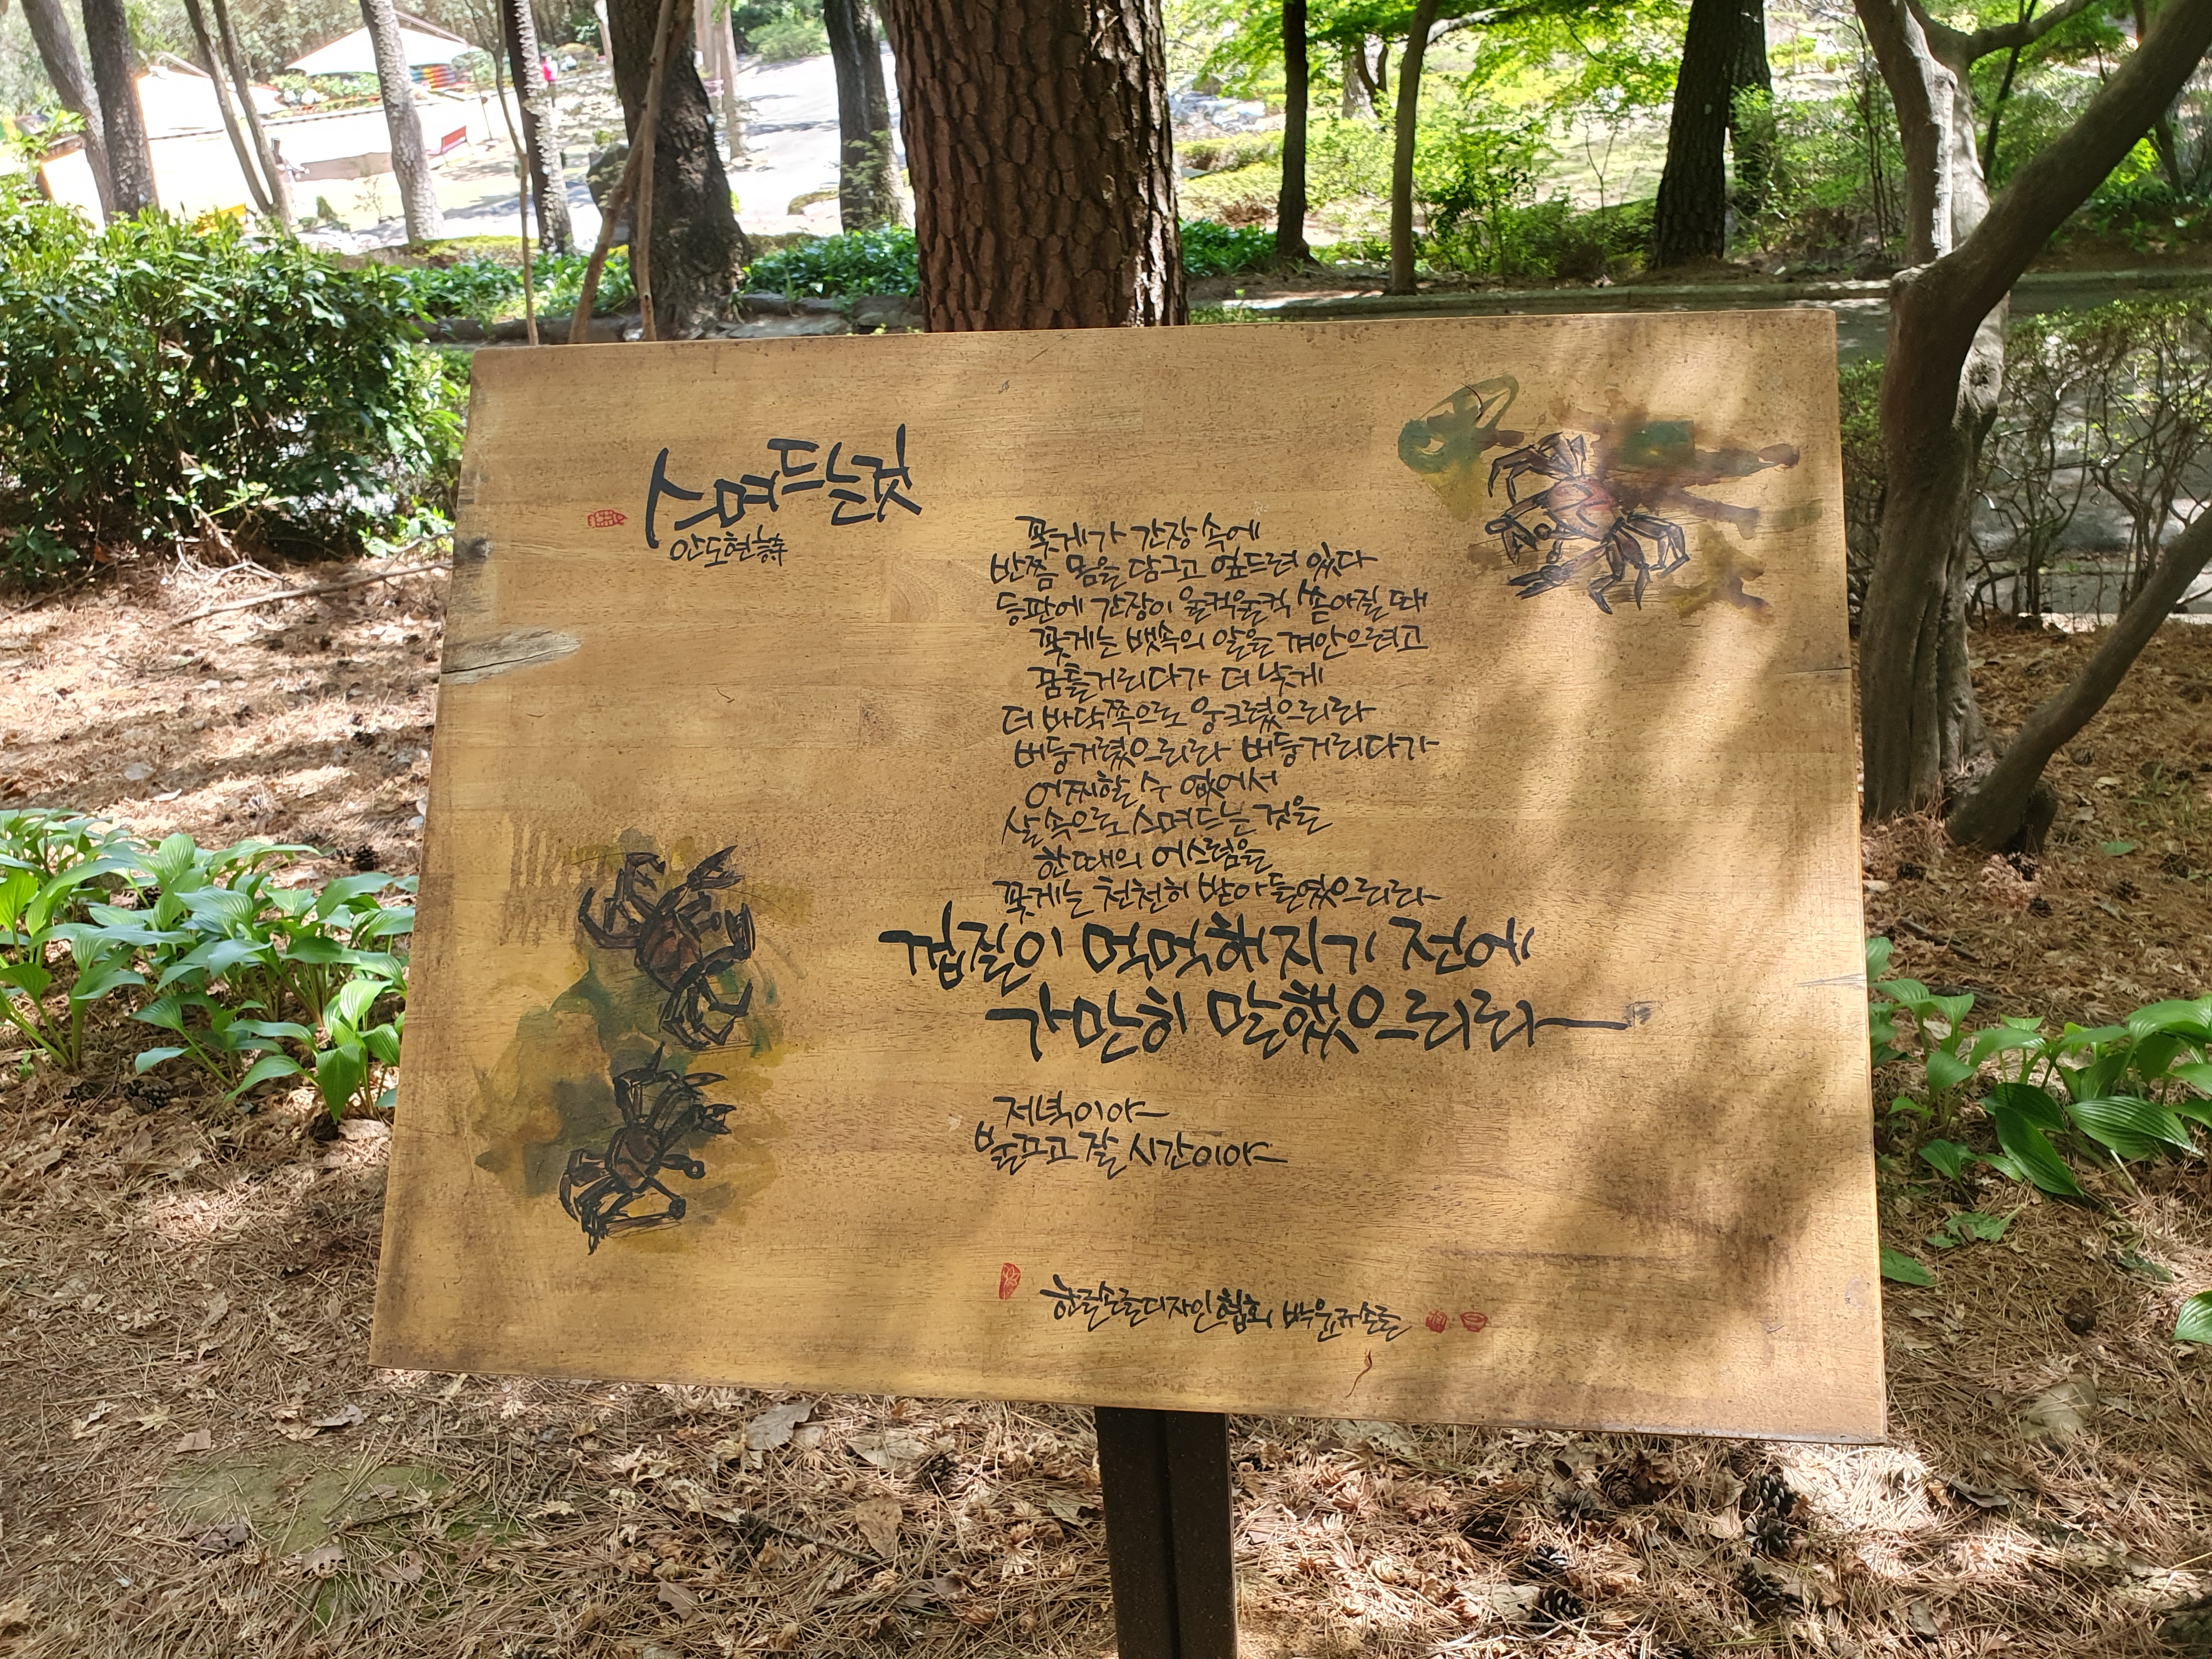 스며드는 것
안도현 詩
꽃게가 간장 속에
반쯤 몸을 담그고 엎드려 있다
등판에 간장이 울컥울컥 쏟아질 때
꽃게는 뱃속의 알을 껴안으려고
꿈틀거리다가 더 낮게
더 바닥쪽으로 웅크렸으리라
버둥거렸으리라 버둥거리다가
어찌할 수 없어서
살 속으로 스며드는 것을
한 때의 어스름을
꽃게는 천천히 받아들였으리라
껍질이 먹먹해지기 전에
가만히 말했으리라
저녁이야
불끄고 잘 시간이야
한글손글디자인협회 박윤규손글